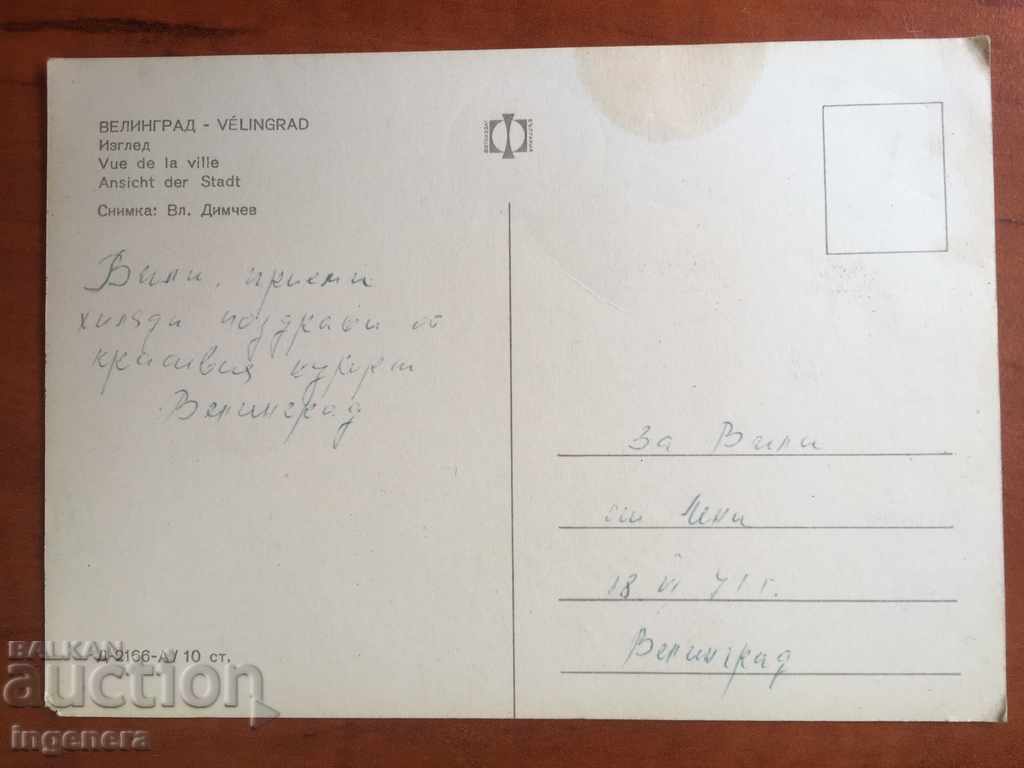 ВЕЛИНГРАД - VÉLINGRAD
Изглед
Vue de la ville
Ansicht der Stadt
Снимка: Вл. Димчев
Вили, приеми
хиляди поздрави от
красивия курорт
Велинград
За Вили
от Лени
18 VI 71 г.
Велинград
Д-2166-А/ 10 ст.
BALKAN
auction
ingenera